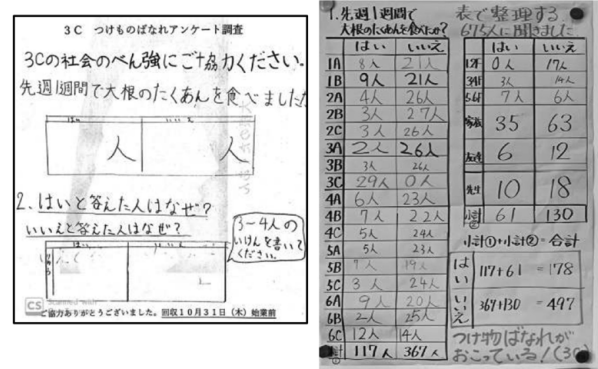 3C つけものばなれアンケート調査
3Cの社会のべん強にご協力ください。
先週1週間で大根のたくあんを食べました
はい いいえ
人 人
2、はいと答えた人はなぜ?
いいえと答えた人はなぜ?
3〜4人の
いけんを書いて
ください。
はい いいえ
CS
ご協力ありがとうございました。回収10月31日(木)始業前
1.先週1週間で
大根のたくあんを食べたか?
はい いいえ
1A 8人 21人
1B 9人 21人
2A 4人 26人
2B 3人 27人
2C 3人 26人
3A 2人 26人
3B 3人 26人
3C 29人 0人
4A 6人 23人
4B 7人 22人
4C 5人 24人
5A 5人 23人
5B 19人
5C 3人 24人
6A 9人 20人
6B 2人 25人
6C 12人 14人
117人 367人
表で整理する
675人に聞きました
はい いいえ
12F 0人 17人
34F 3人 14人
56F 7人 6人
家族 35 63
6 12
先生 10 18
小計② 61 130
小計①+小計②=合計
はい 117+61 =178
いいえ 367+130 =497
つけ物ばなれが
おこっている!(3C)